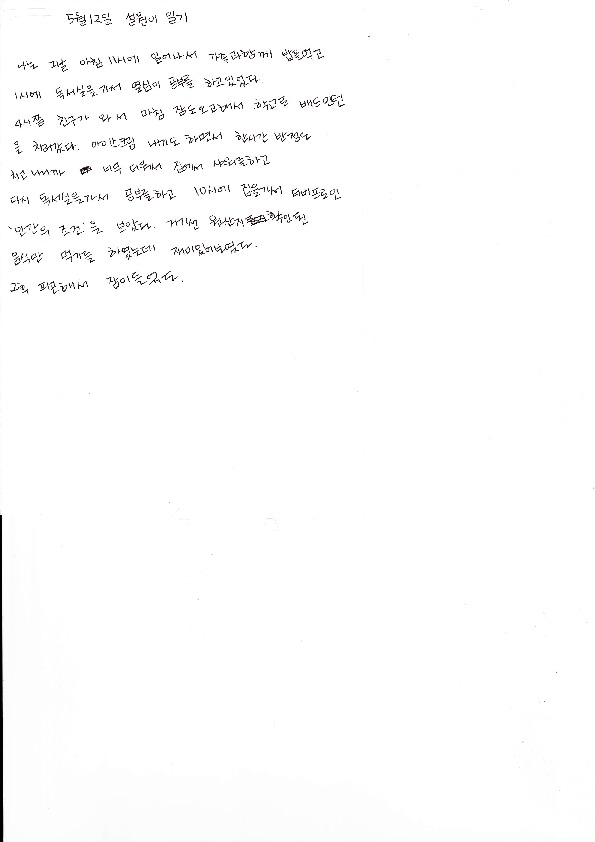 5월12일 설원이 일기
나는 그날 아침 11시에 일어나서 가족과함께 밥을먹고
1시에 독서실을가서 열심히 공부를 하고있었다.
4시쯤 친구가 와서 마침 잠도오고해서 학교로 배드민턴
을 치러갔다. 아이스크림 내기도 하면서 한시간 반정도
치고나니까 너무 더워서 집에서 샤워를하고
다시 독서실을가서 공부를하고 10시에 집을가서 티비프로인
'인간의 조건'을 보았다. 거기선 원산지 확인된
음식만 먹기를 하였는데 재미있어보였다.
그후 피곤해서 잠이들었다.